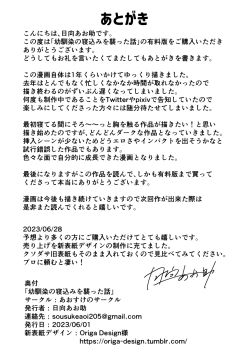 あとがき
こんにちは、日向あお助です。
この度は「幼馴染の寝込みを襲った話」の有料版をご購入いただき
ありがとうございます。
どうしてもお礼を言いたくてまたしてもあとがきを書きます。
この漫画自体は1年くらいかけてゆっくり描きました。
去年はとんでもなく忙しくてなかなか時間が取れなかったので
描き終わるのがずいぶん遅くなってしまいました。
何度も制作中であることをTwitterやpixivで告知していたので
楽しみにしてくださった方々には随分待たせてしまいました。
最初寝てる間にそろ〜〜っと胸を触る作品が描きたい！と思い
描き始めたのですが、どんどんダークな作品となっていきました。
挿入シーンが少ないためどうエロさやインパクトを出そうかなと
試行錯誤した作品でもあります。
色々な面で自分的に成長できた漫画となりました。
最後になりますがこの作品を読んで、しかも有料版まで買って
くださって本当にありがとうございます。
漫画は今後も描き続けていきますので次回作が出来た際は
是非また読んでくれると嬉しいです。
2023/06/28
予想より多くの方にご購入いただけてとても嬉しいです。
売り上げを新表紙デザインの制作に充てました。
クソダサ旧表紙もそのまま入れておくので見比べてみてください。
プロに頼むと凄い！
日向あお助
奥付
「幼馴染の寝込みを襲った話」
サークル：あおすけのサークル
発行者：日向あお助
連絡先：sousukeaoi205@gmail.com
発行日：2023/06/01
新表紙デザイン：Origa Design様
https://origa-design.tumblr.com/